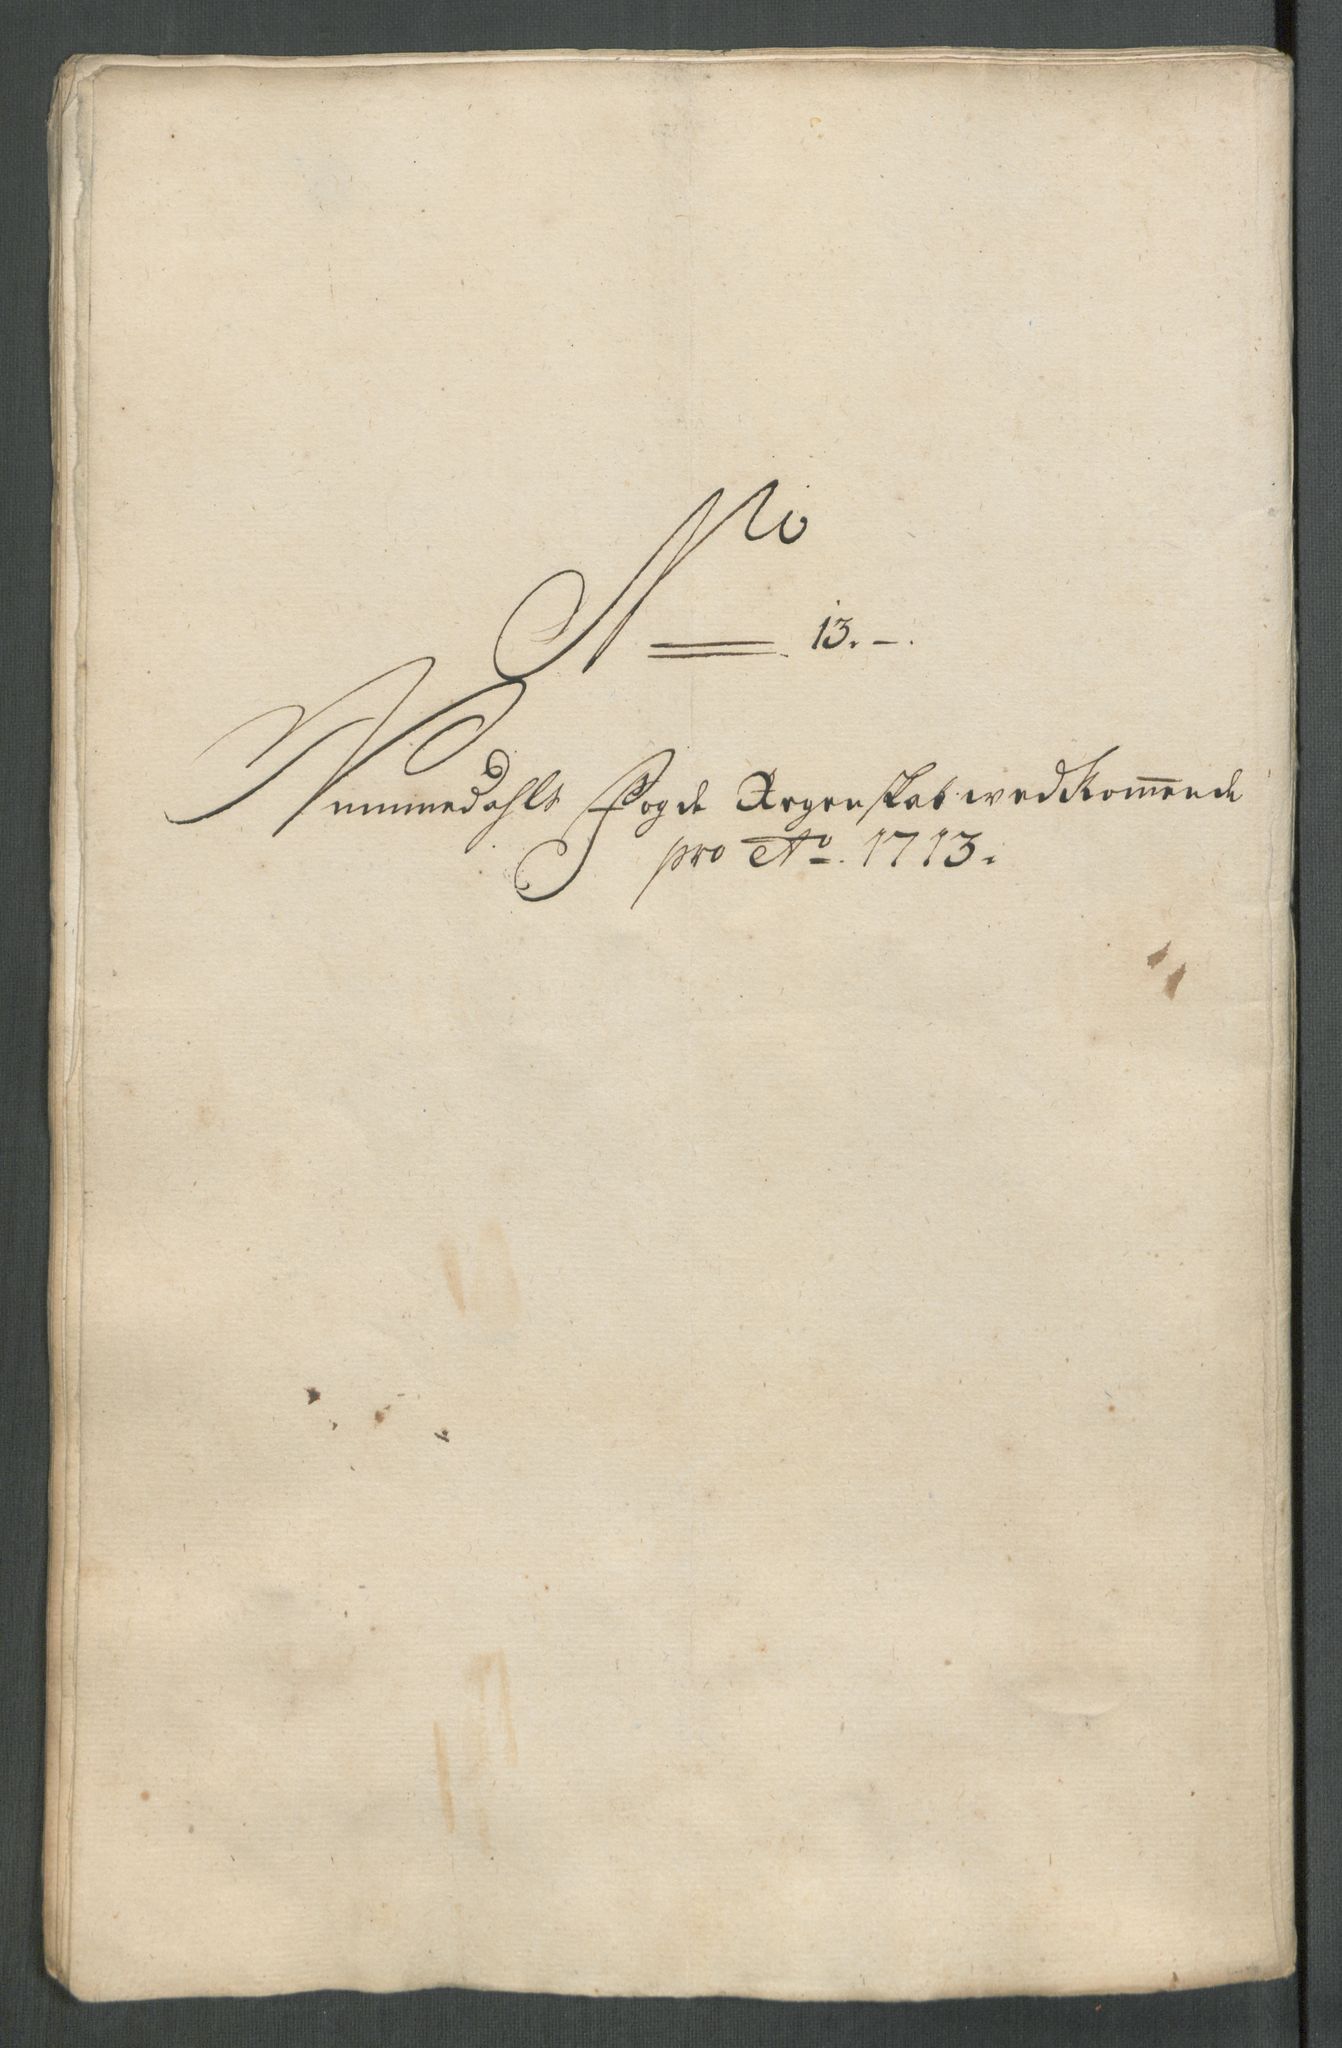 No
13. –.
Nummedahls Fogde Regenskab wedkom̅ende
pro Ao. 1713.